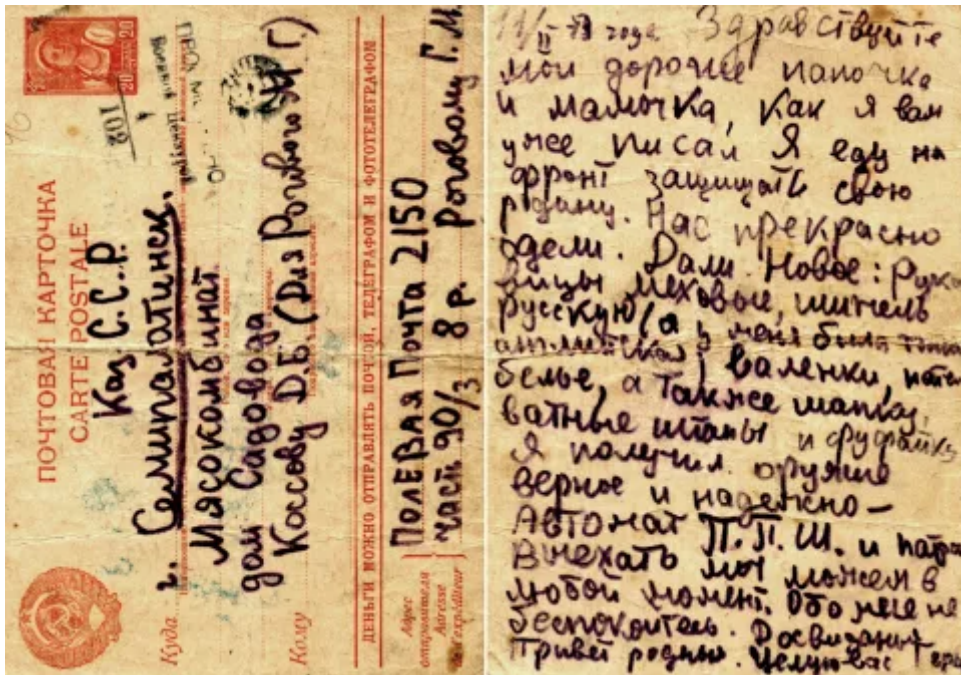 ПОЧТОВАЯ КАРТОЧКА
CARTE POSTALE
20
20
102
Каз С.С.Р.
Куда г. Семипалатинск.
Мясокомбинат
дом Садовода
Кому Кассову Д.Б. (Для Рогового Г.)
ДЕНЬГИ МОЖНО ОТПРАВЛЯТЬ ПОЧТОЙ, ТЕЛЕГРАФОМ И ФОТОТЕЛЕГРАФОМ
Адрес
отправителя
Adresse
de l'expéditeur
Полевая Почта 2150
часть 90/3 8 р. Роговому Г.М.
II года Здравствуйте
мои дорогие папочка
и мамочка, Как я вам
уже писал Я еду на
фронт защищать свою
родину. Нас прекрасно
одели. Дали Новое: Рука
вицы меховые, шинель
русскую (а у меня была
английская), валенки,
белье, а также шапку,
ватные штаны и фуфайку
Я получил оружие
верное и надежно—
Автомат П.П.Ш. и
Выехать мы можем в
любой момент. Обо мне не
беспокойтесь. Досвиданья
Привет родным. Целую вас